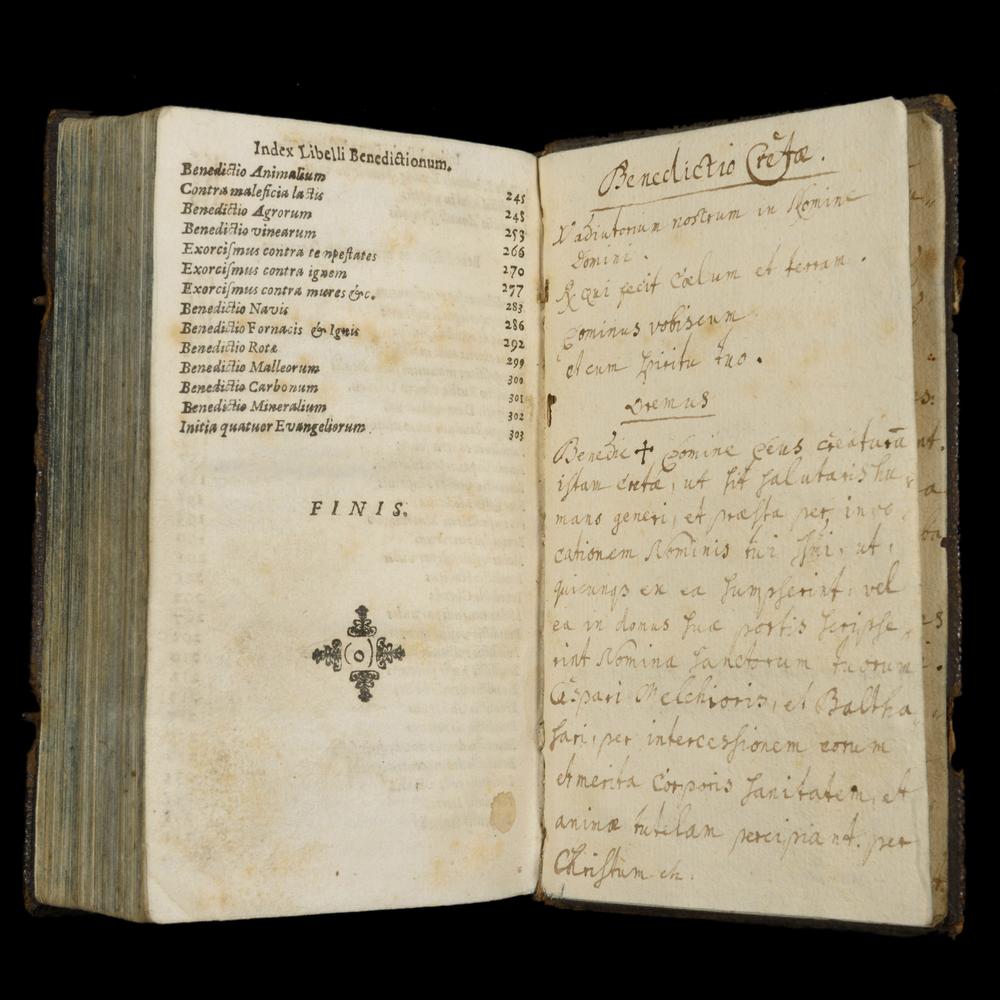 Index Libelli Benedictionum.
Benedictio Animalium
Contra maleficia lactis 245
Benedictio Agrorum 248
Benedictio vinearum 253
Exorcismus contra tenpestates 266
Exorcismus contra ignem 270
Exorcismus contra mures &c. 277
Benedictio Navis 283
Benedictio Fornacis & Ignis 286
Benedictio Rotæ 292
Benedictio Malleorum 299
Benedictio Carbonum 300
Benedictio Mineralium 301
Initia quatuor Evangeliorum. 302
303
FINIS.
Benedictio Cretæ.
V adiutorium nostrum in Nomine
Domini.
R. qui fecit Cœlum et terram.
Dominus vobiscum
et cum spiritu tuo.
Oremus
Benedic ✝ Domine Deus creaturā
istam cretæ, ut sit salutaris hu
mano generi, et præsta per invo
cationem Nominis tui ut,
quicunqs ex ea sumpserint, vel
ea in domus suæ portis scripse
rint Nomina sanctorum tuorum
Caspari Melchioris, et Baltha
sari, per intercessionem eorum
et merita Corporis sanitatem, et
animæ tutelam percipiant. per
Christum